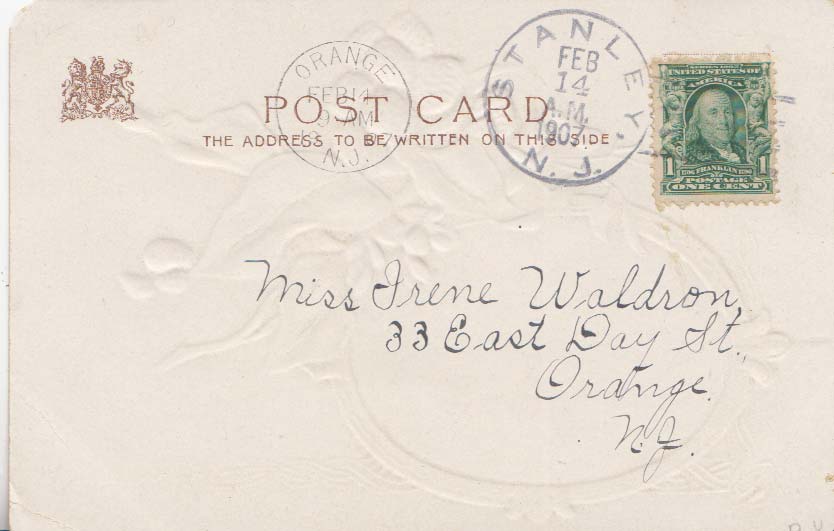 ORANGE
FEB 14
9 AM
N.J.
STANLEY,
FEB
14
A.M.
1907
N. J.
SERIES 1902
UNITED STATES OF
AMERICA
1 1706 FRANKLIN 1790 1
POSTAGE
ONE CENT
POST CARD
THE ADDRESS TO BE WRITTEN ON THIS SIDE
Miss Irene Waldron,
33 East Day St.,
Orange.
N.J.